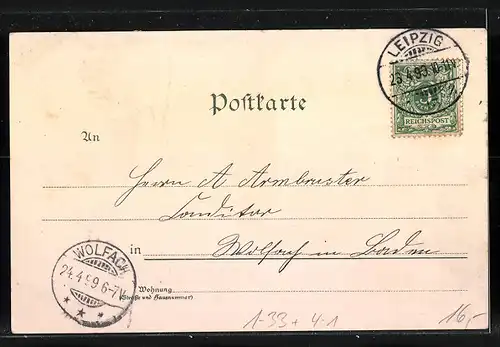 LEIPZIG
23.4.99.10-11V
REICHSPOST
Postkarte
An
Herrn A Armbruster
Conditor
in Wolfach in Baden
WOLFACH
24.4.99 6-7V.
Wohnung
(Straße und Hausnummer)
1-33 + 4-1
16,-